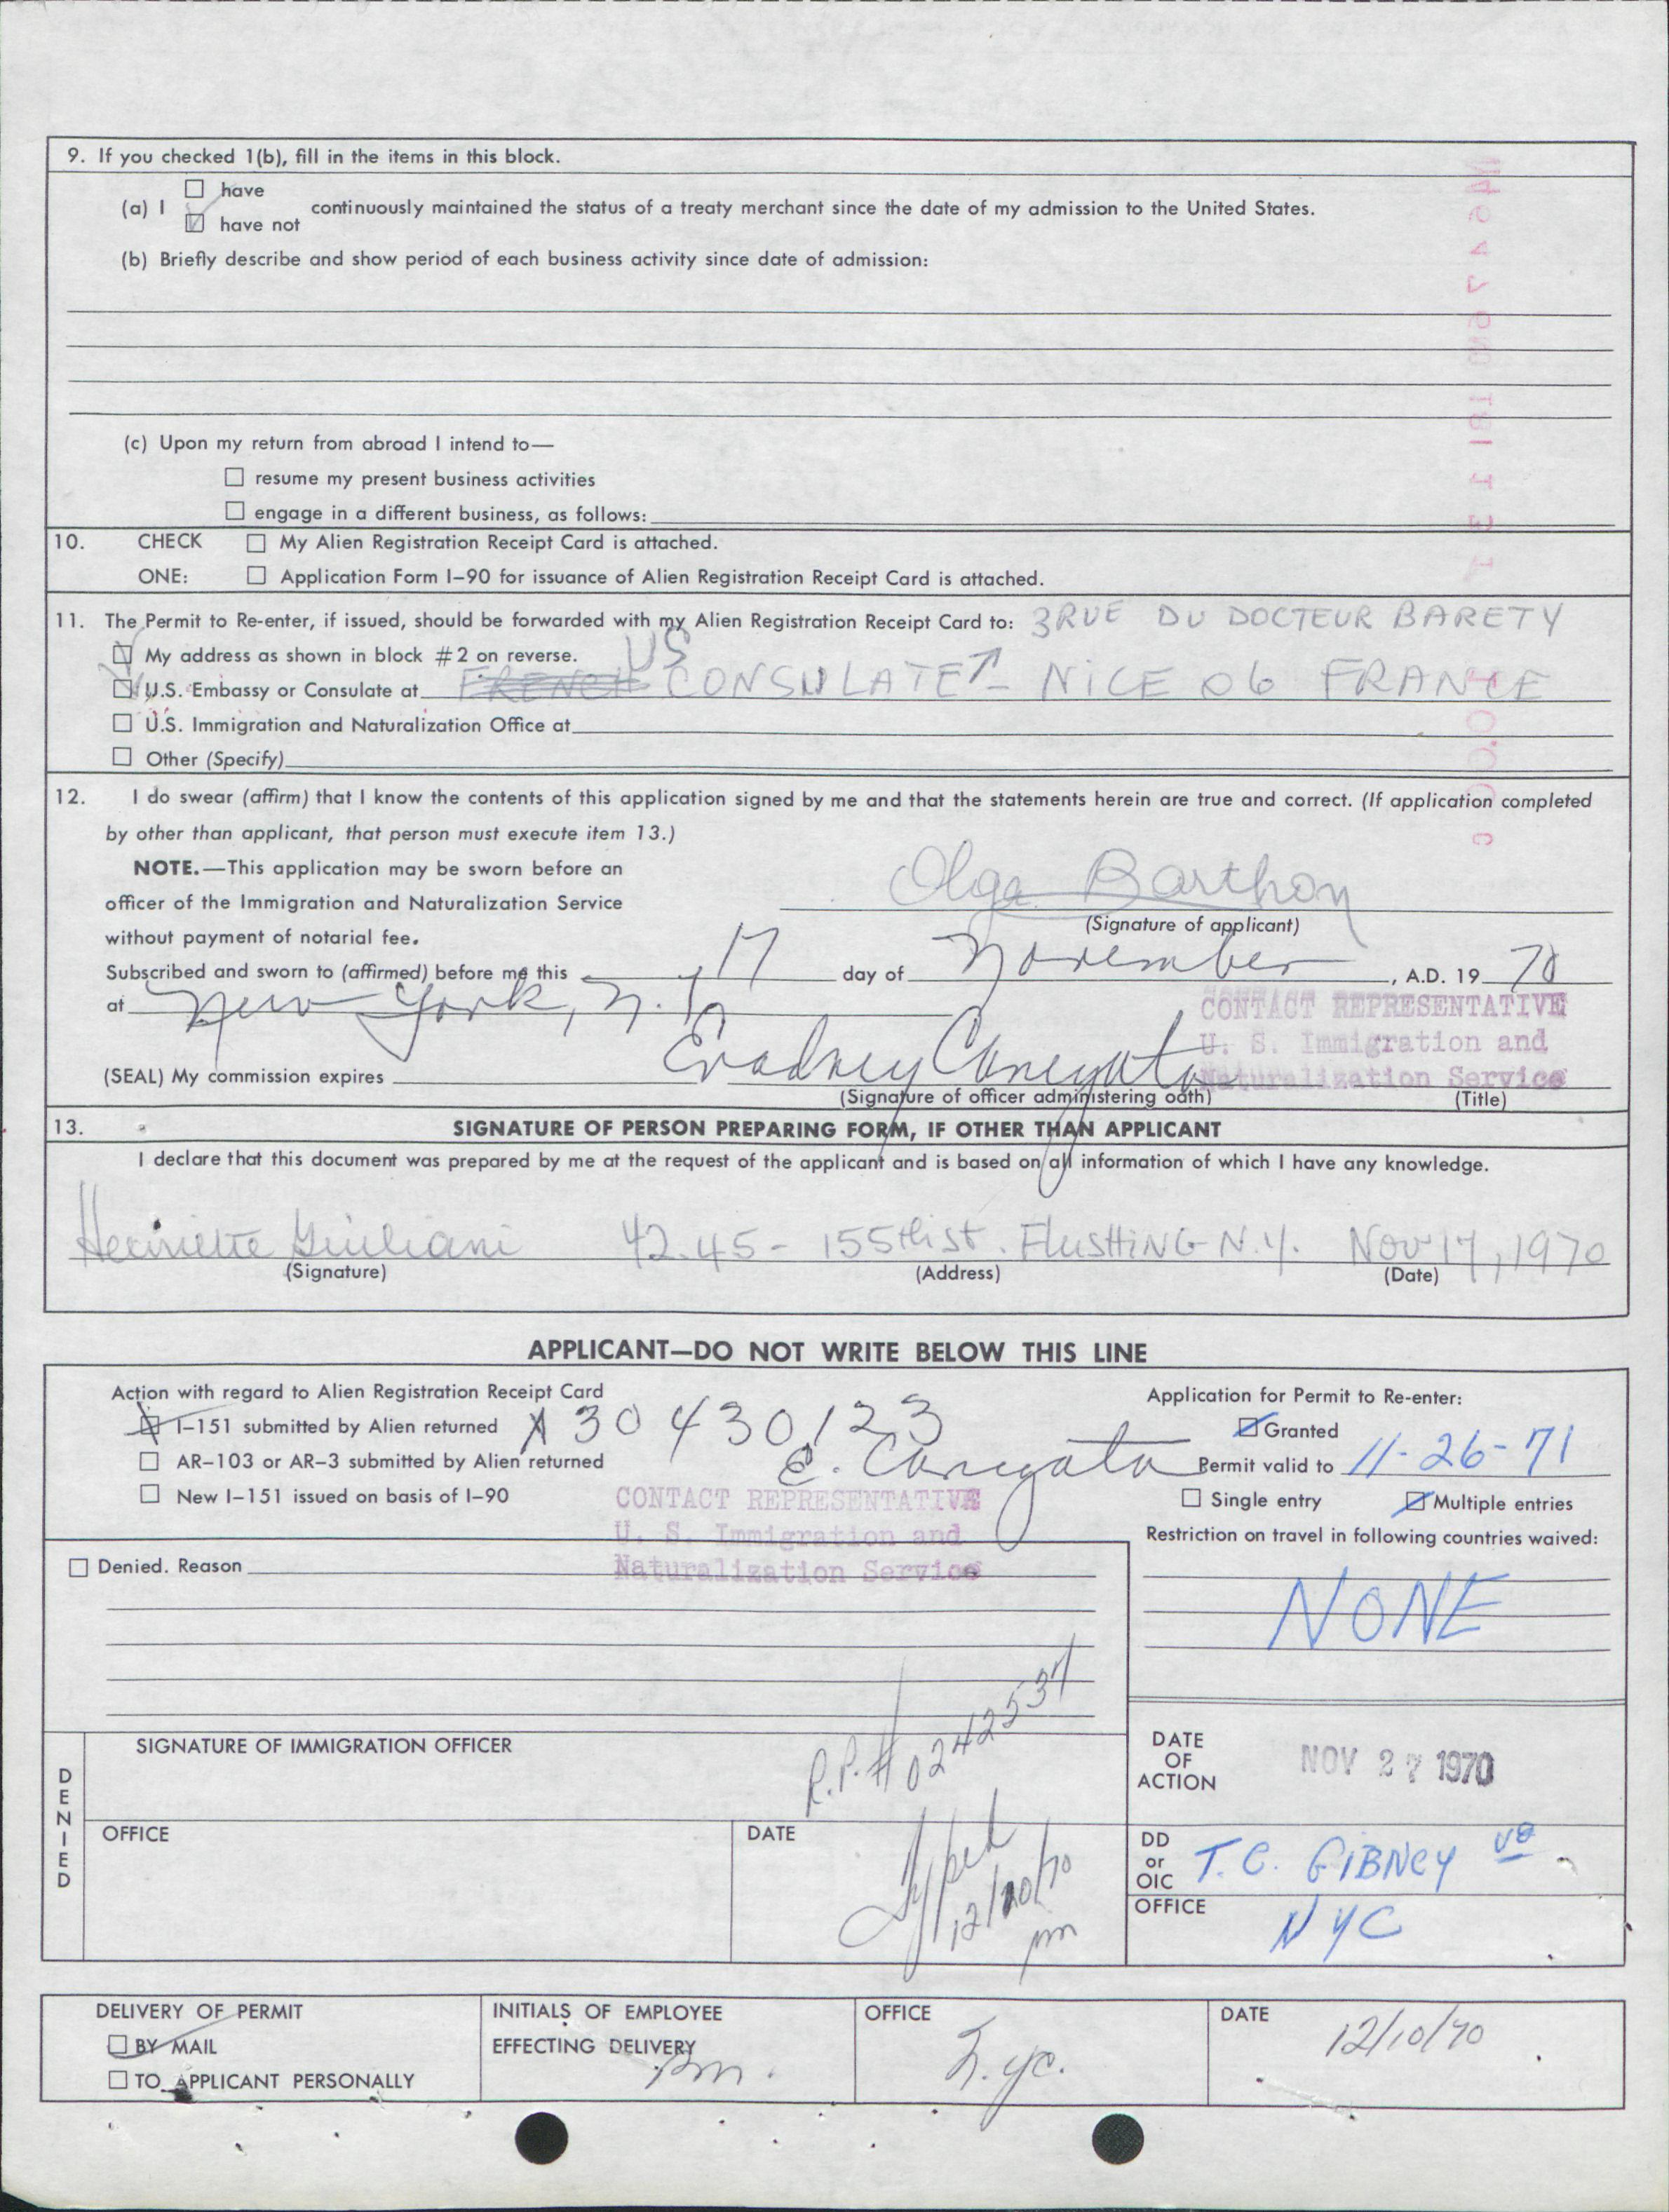 9. If you checked 1(b), fill in the items in this block.
(a) I ☐ have
☑ have not continuously maintained the status of a treaty merchant since the date of my admission to the United States.
(b) Briefly describe and show period of each business activity since date of admission:
(c) Upon my return from abroad I intend to—
☐ resume my present business activities
☐ engage in a different business, as follows:
10. CHECK ☐ My Alien Registration Receipt Card is attached.
ONE: ☐ Application Form I-90 for issuance of Alien Registration Receipt Card is attached.
11. The Permit to Re-enter, if issued, should be forwarded with my Alien Registration Receipt Card to: 3 RUE DU DOCTEUR BARETY
☑ My address as shown in block #2 on reverse. US
☑ U.S. Embassy or Consulate at FRENCH CONSULATE ↑ - NICE 06 FRANCE
☐ U.S. Immigration and Naturalization Office at
☐ Other (Specify)
12. I do swear (affirm) that I know the contents of this application signed by me and that the statements herein are true and correct. (If application completed
by other than applicant, that person must execute item 13.)
NOTE.—This application may be sworn before an
officer of the Immigration and Naturalization Service
without payment of notarial fee.
Olga Barthon
(Signature of applicant)
Subscribed and sworn to (affirmed) before me this 17 day of November, A.D. 19 70
at New York, N.Y.
CONTACT REPRESENTATIVE
U. S. Immigration and
Naturalization Service
(SEAL) My commission expires
(Signature of officer administering oath) (Title)
13. SIGNATURE OF PERSON PREPARING FORM, IF OTHER THAN APPLICANT
I declare that this document was prepared by me at the request of the applicant and is based on all information of which I have any knowledge.
Henriette Giuliani 42.45 - 155th st. FlusHING N.Y. Nov 17, 1970
(Signature) (Address) (Date)
APPLICANT—DO NOT WRITE BELOW THIS LINE
Action with regard to Alien Registration Receipt Card
☒ I-151 submitted by Alien returned A30 430 123
☐ AR-103 or AR-3 submitted by Alien returned
☐ New I-151 issued on basis of I-90
CONTACT REPRESENTATIVE
U. S. Immigration and
Naturalization Service
Application for Permit to Re-enter:
☑ Granted
Permit valid to 11-26-71
☐ Single entry ☑ Multiple entries
Restriction on travel in following countries waived:
NONE
☐ Denied. Reason
R.P. # 0242537
DENIED
SIGNATURE OF IMMIGRATION OFFICER
OFFICE
DATE
12/10/70
pm
DATE OF ACTION NOV 27 1970
DD or OIC T. C. GIBNEY
OFFICE NYC
DELIVERY OF PERMIT
☑ BY MAIL
☐ TO APPLICANT PERSONALLY
INITIALS OF EMPLOYEE
EFFECTING DELIVERY pm.
OFFICE N.yc.
DATE 12/10/70